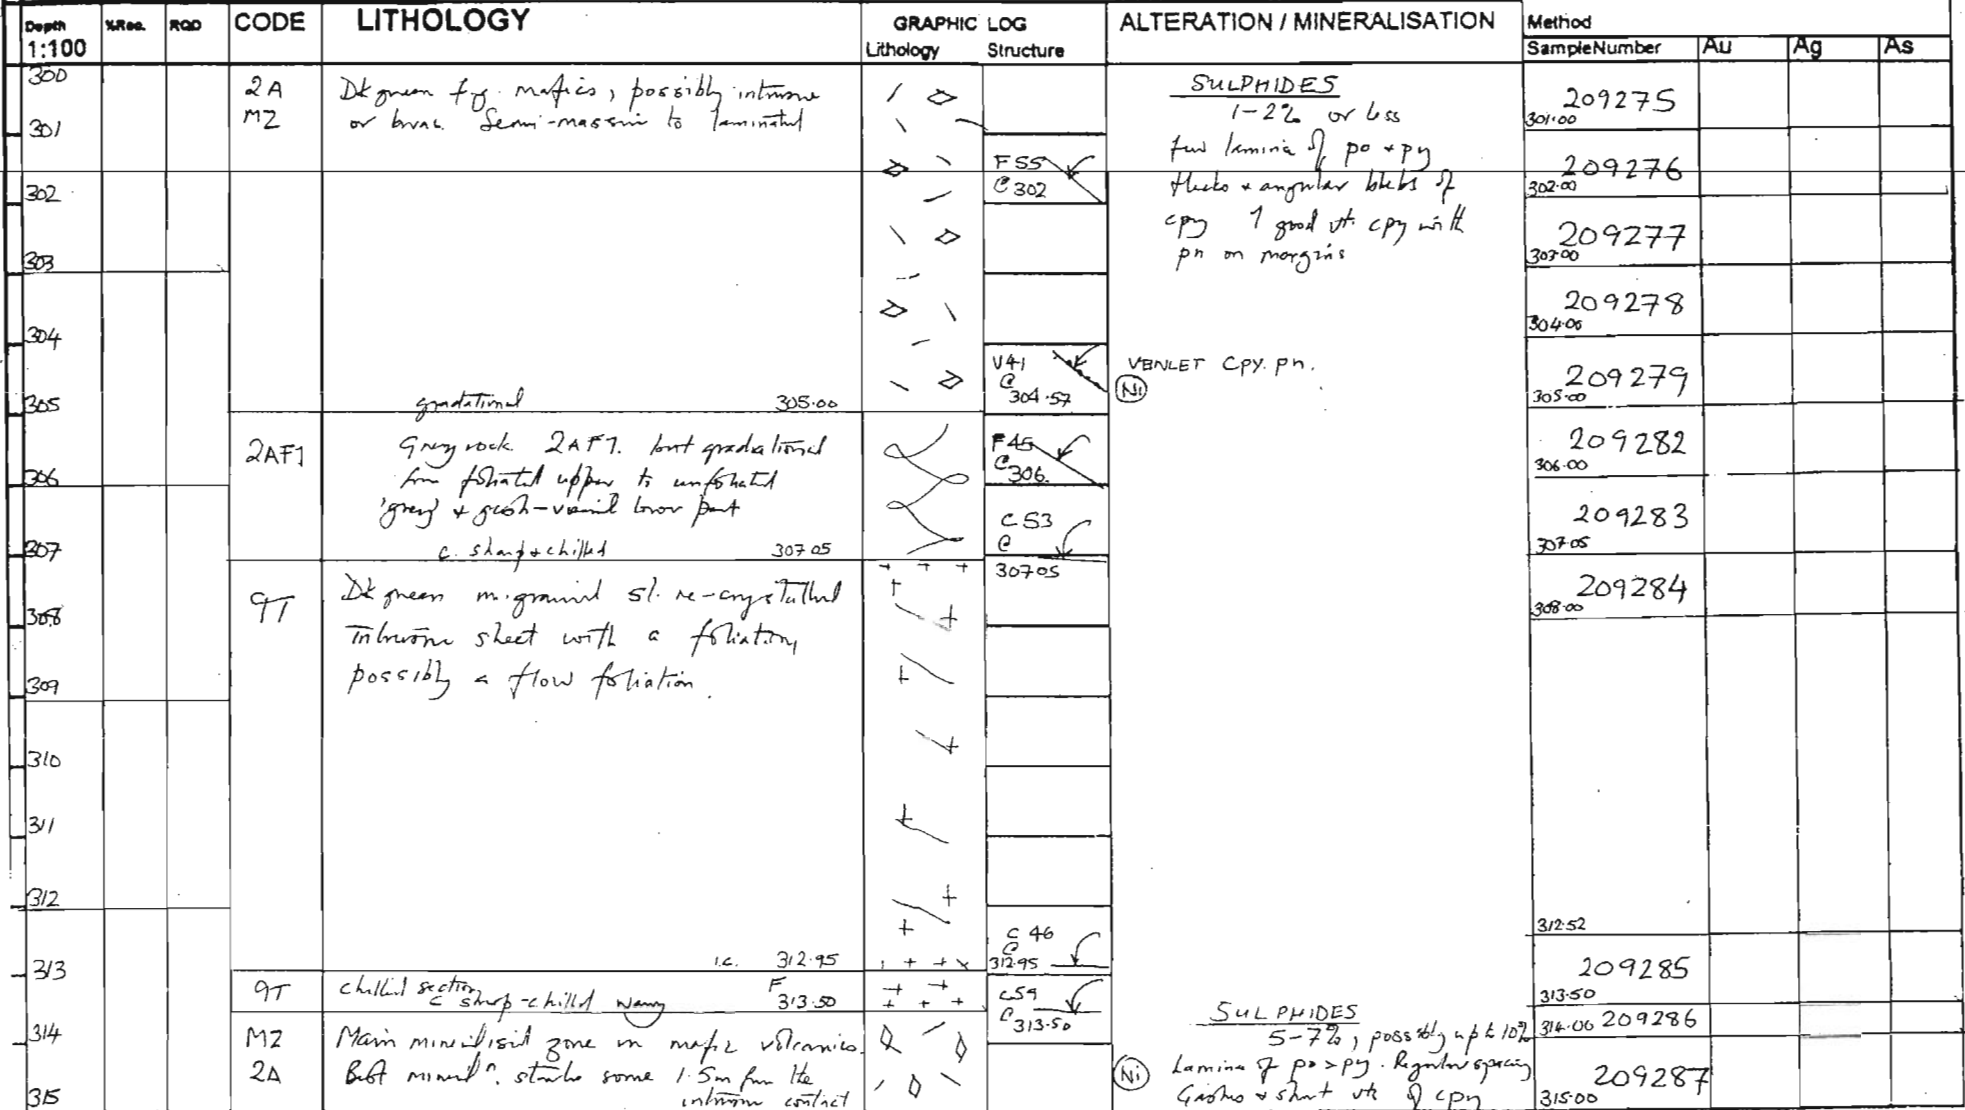 Depth %Rec. RQD CODE LITHOLOGY GRAPHIC LOG ALTERATION / MINERALISATION Method
1:100 Lithology Structure SampleNumber Au Ag As
300
301
302
303
304
305
306
307
308
309
310
311
312
313
314
315
2A
MZ
Dk green f.g. mafics, possibly intrusive
or bvac. Semi-massive to laminated
gradational 305.00
2AF1
Grey rock. 2AF1. but gradational
from foliated upper to unfoliated
'grey' + gash-veined lower part
c. sharp + chilled 307 05
9T
Dk green m. grained sl. re-crystallised
intrusive sheet with a foliation,
possibly a flow foliation.
i.c. 312.95
9T
chilled section F
c sharp-chilled wavy 313.50
MZ
2A
Main mineralised zone in mafic volcanics.
Best mineraln. starts some 1.5m from the
intrusive contact
F55
@ 302
V41
@
304.57
F45
@
306.
C 53
@
307 05
C 46
@
312.95
C59
@ 313.50
SULPHIDES
1-2% or less
few lamina of po + py
flecks + angular blebs of
cpy 1 good vt. cpy with
pn on margins
VEINLET cpy. pn.
Ni
SULPHIDES
5-7%, possibly up to 10%
Ni
Lamina of po > py. Regular spacing
Gashes + short vts of cpy
209275
301.00
209276
302.00
209277
303.00
209278
304.00
209279
305.00
209282
306.00
209283
307.05
209284
308.00
312.52
209285
313.50
314.00 209286
209287
315.00